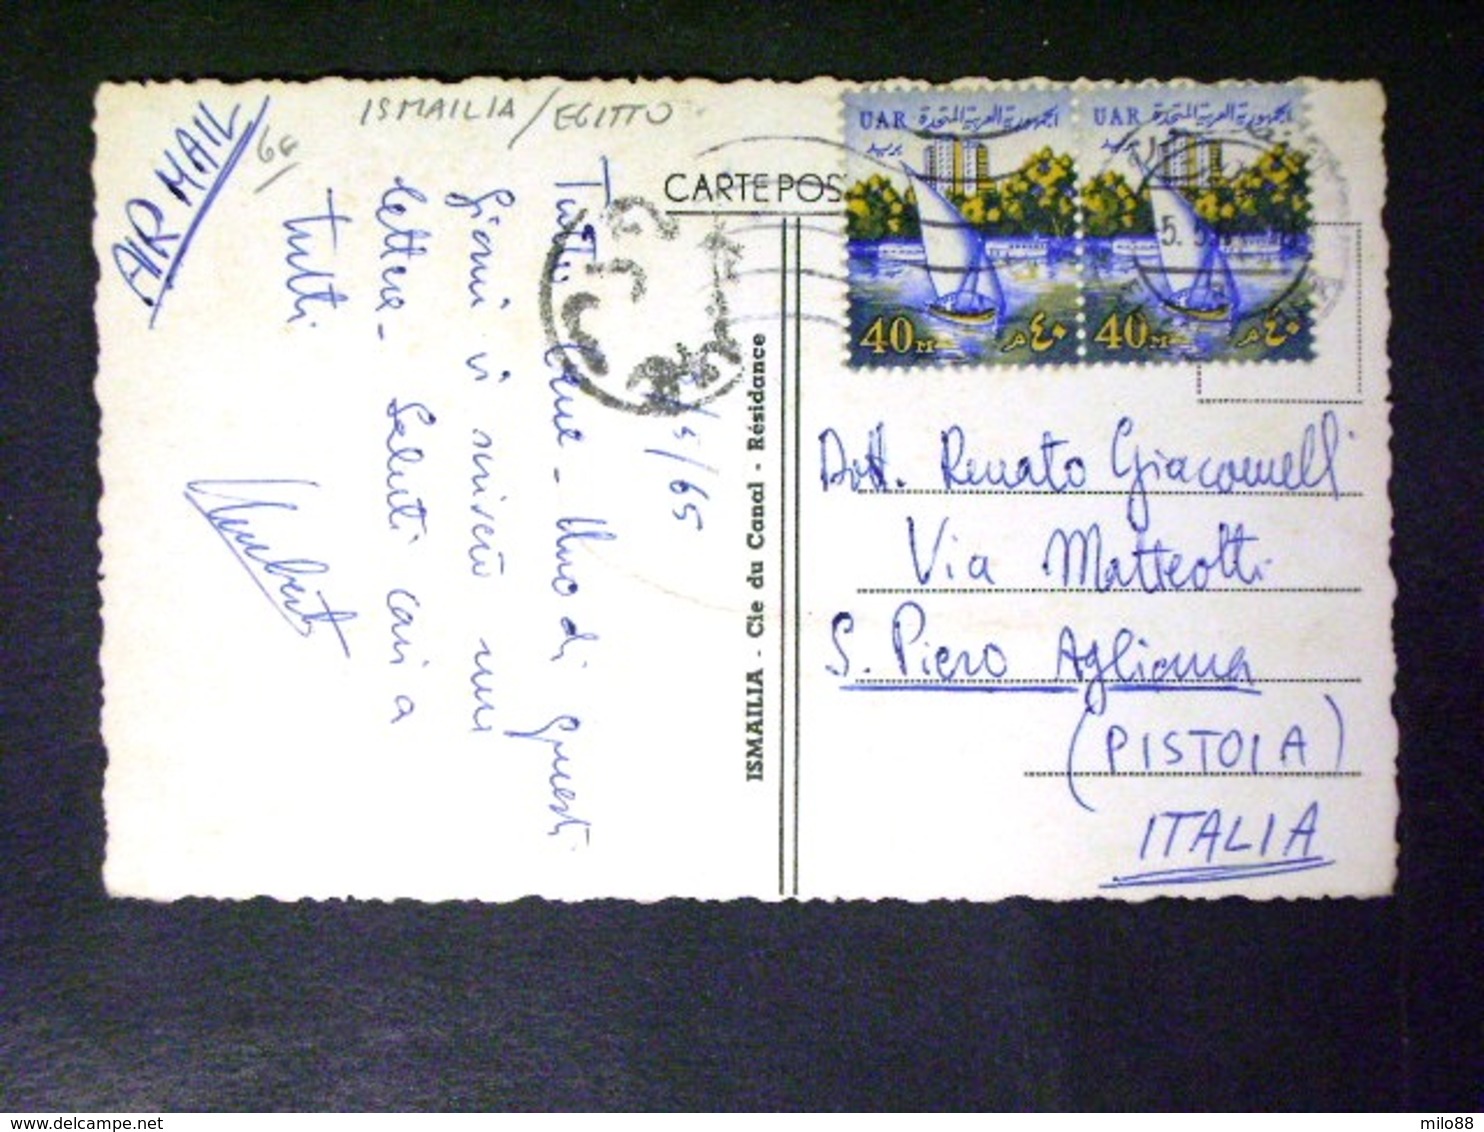 AIR MAIL
ISMAILIA/EGITTO
CARTE POS
UAR الجمهورية العربية المتحدة
بريد
40 M ٤٠ م
UAR الجمهورية العربية المتحدة
بريد
40 M ٤٠ م
5.5
/5/65
Tutto bene - Uno di questi
giorni vi scriverò una
lettera - Saluti cari a
tutti
Umberto
ISMAILIA - Cie du Canal - Résidance
Dott. Renato Giacomelli
Via Matteotti
S. Piero Agliana
(PISTOIA)
ITALIA
delcampe.net
milo88